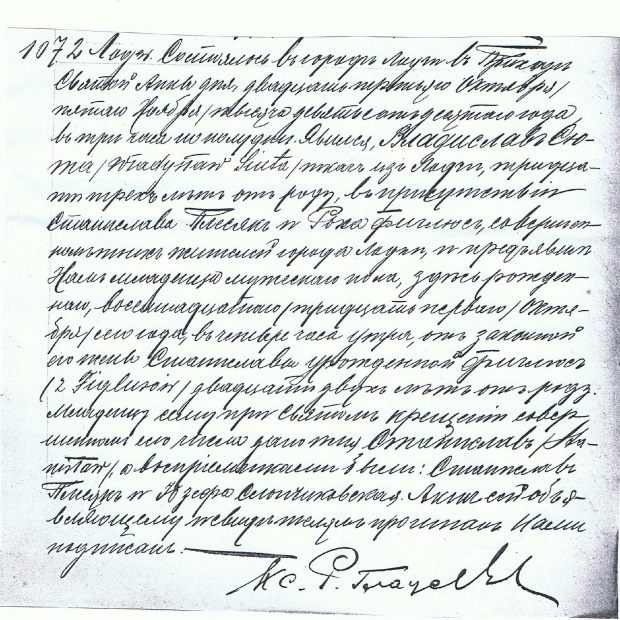 1072 Лодзь. Состоялось въ городѣ Лодзи въ Приходѣ
Святой Анны дня, двадцать третьяго Октября/
пятаго Ноября/ тысяча девятьсотъ десятаго года
въ три часа по полудни. Явился, Владиславъ Сю-
та /Władysław Siuta/ ткачъ изъ Лодзи, тридца-
ти трехъ лѣтъ отъ роду, въ присутствіи
Станислава Плесяк и Роха Фиглюсъ, совершен-
нолѣтнихъ жителей города Лодзи, и предъявилъ
Намъ младенца мужескаго пола, здѣсь рожден-
наго, восемнадцатаго /тридцать перваго/ Октя-
бря/ сего года, въ четыре часа утра, отъ законной
его жены Станиславы урожденной Фиглюсъ
/z Figlusów/ двадцати двухъ лѣтъ отъ роду.
Младенцу сему при Святомъ крещеніи совер-
шенномъ его числа дано имя Станиславъ /Sta-
nisław/, а воспріемниками были: Станиславъ
Плесякъ и Юзефа Актъ сей объя-
вляющему и свидѣтелямъ прочитанъ Нами
подписанъ.
Кс. Р.